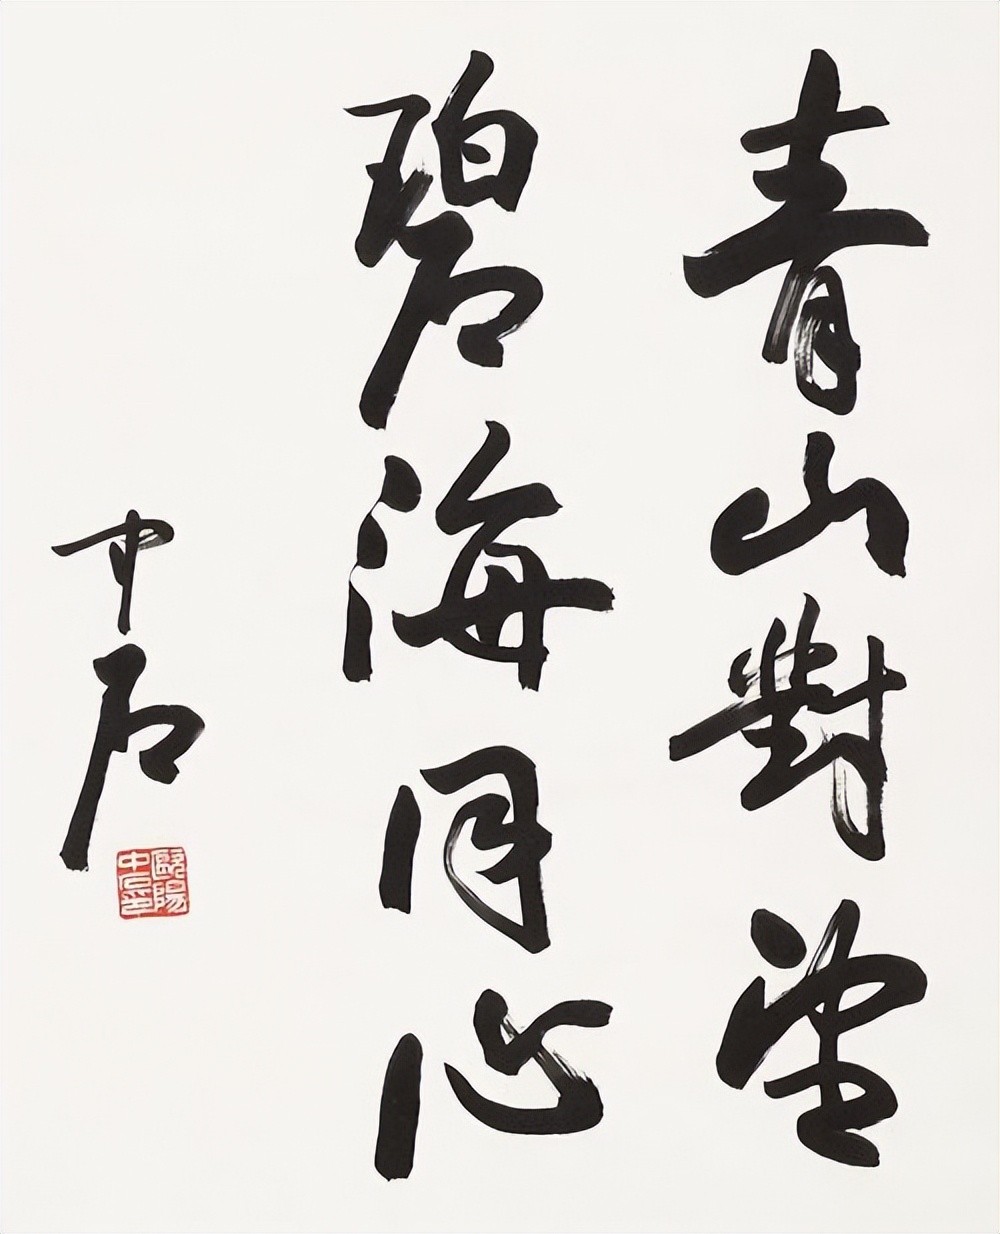 青山對望
碧海同心
中石
歐陽中石印